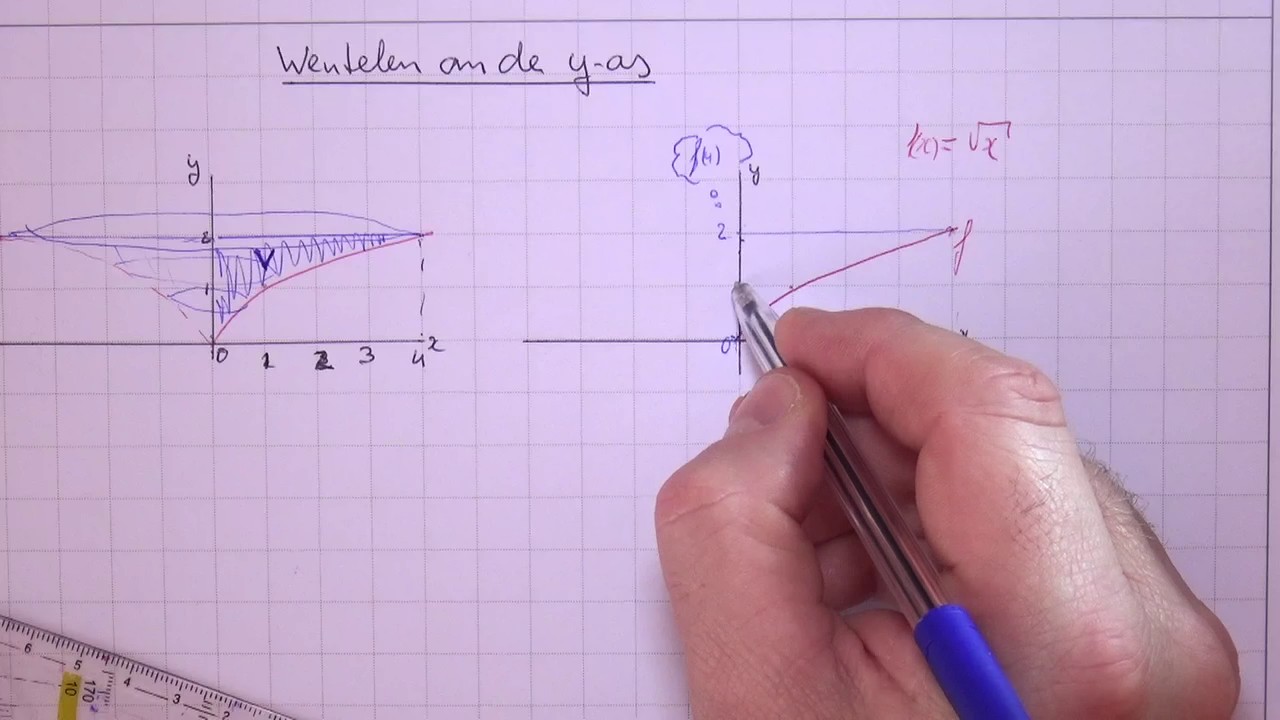 Wentelen om de y-as
f(x) = √x
f(4)
y
y
2
2
f
V
1
0
0 1 2 3 4 x
6 5 4 3 2
10 170